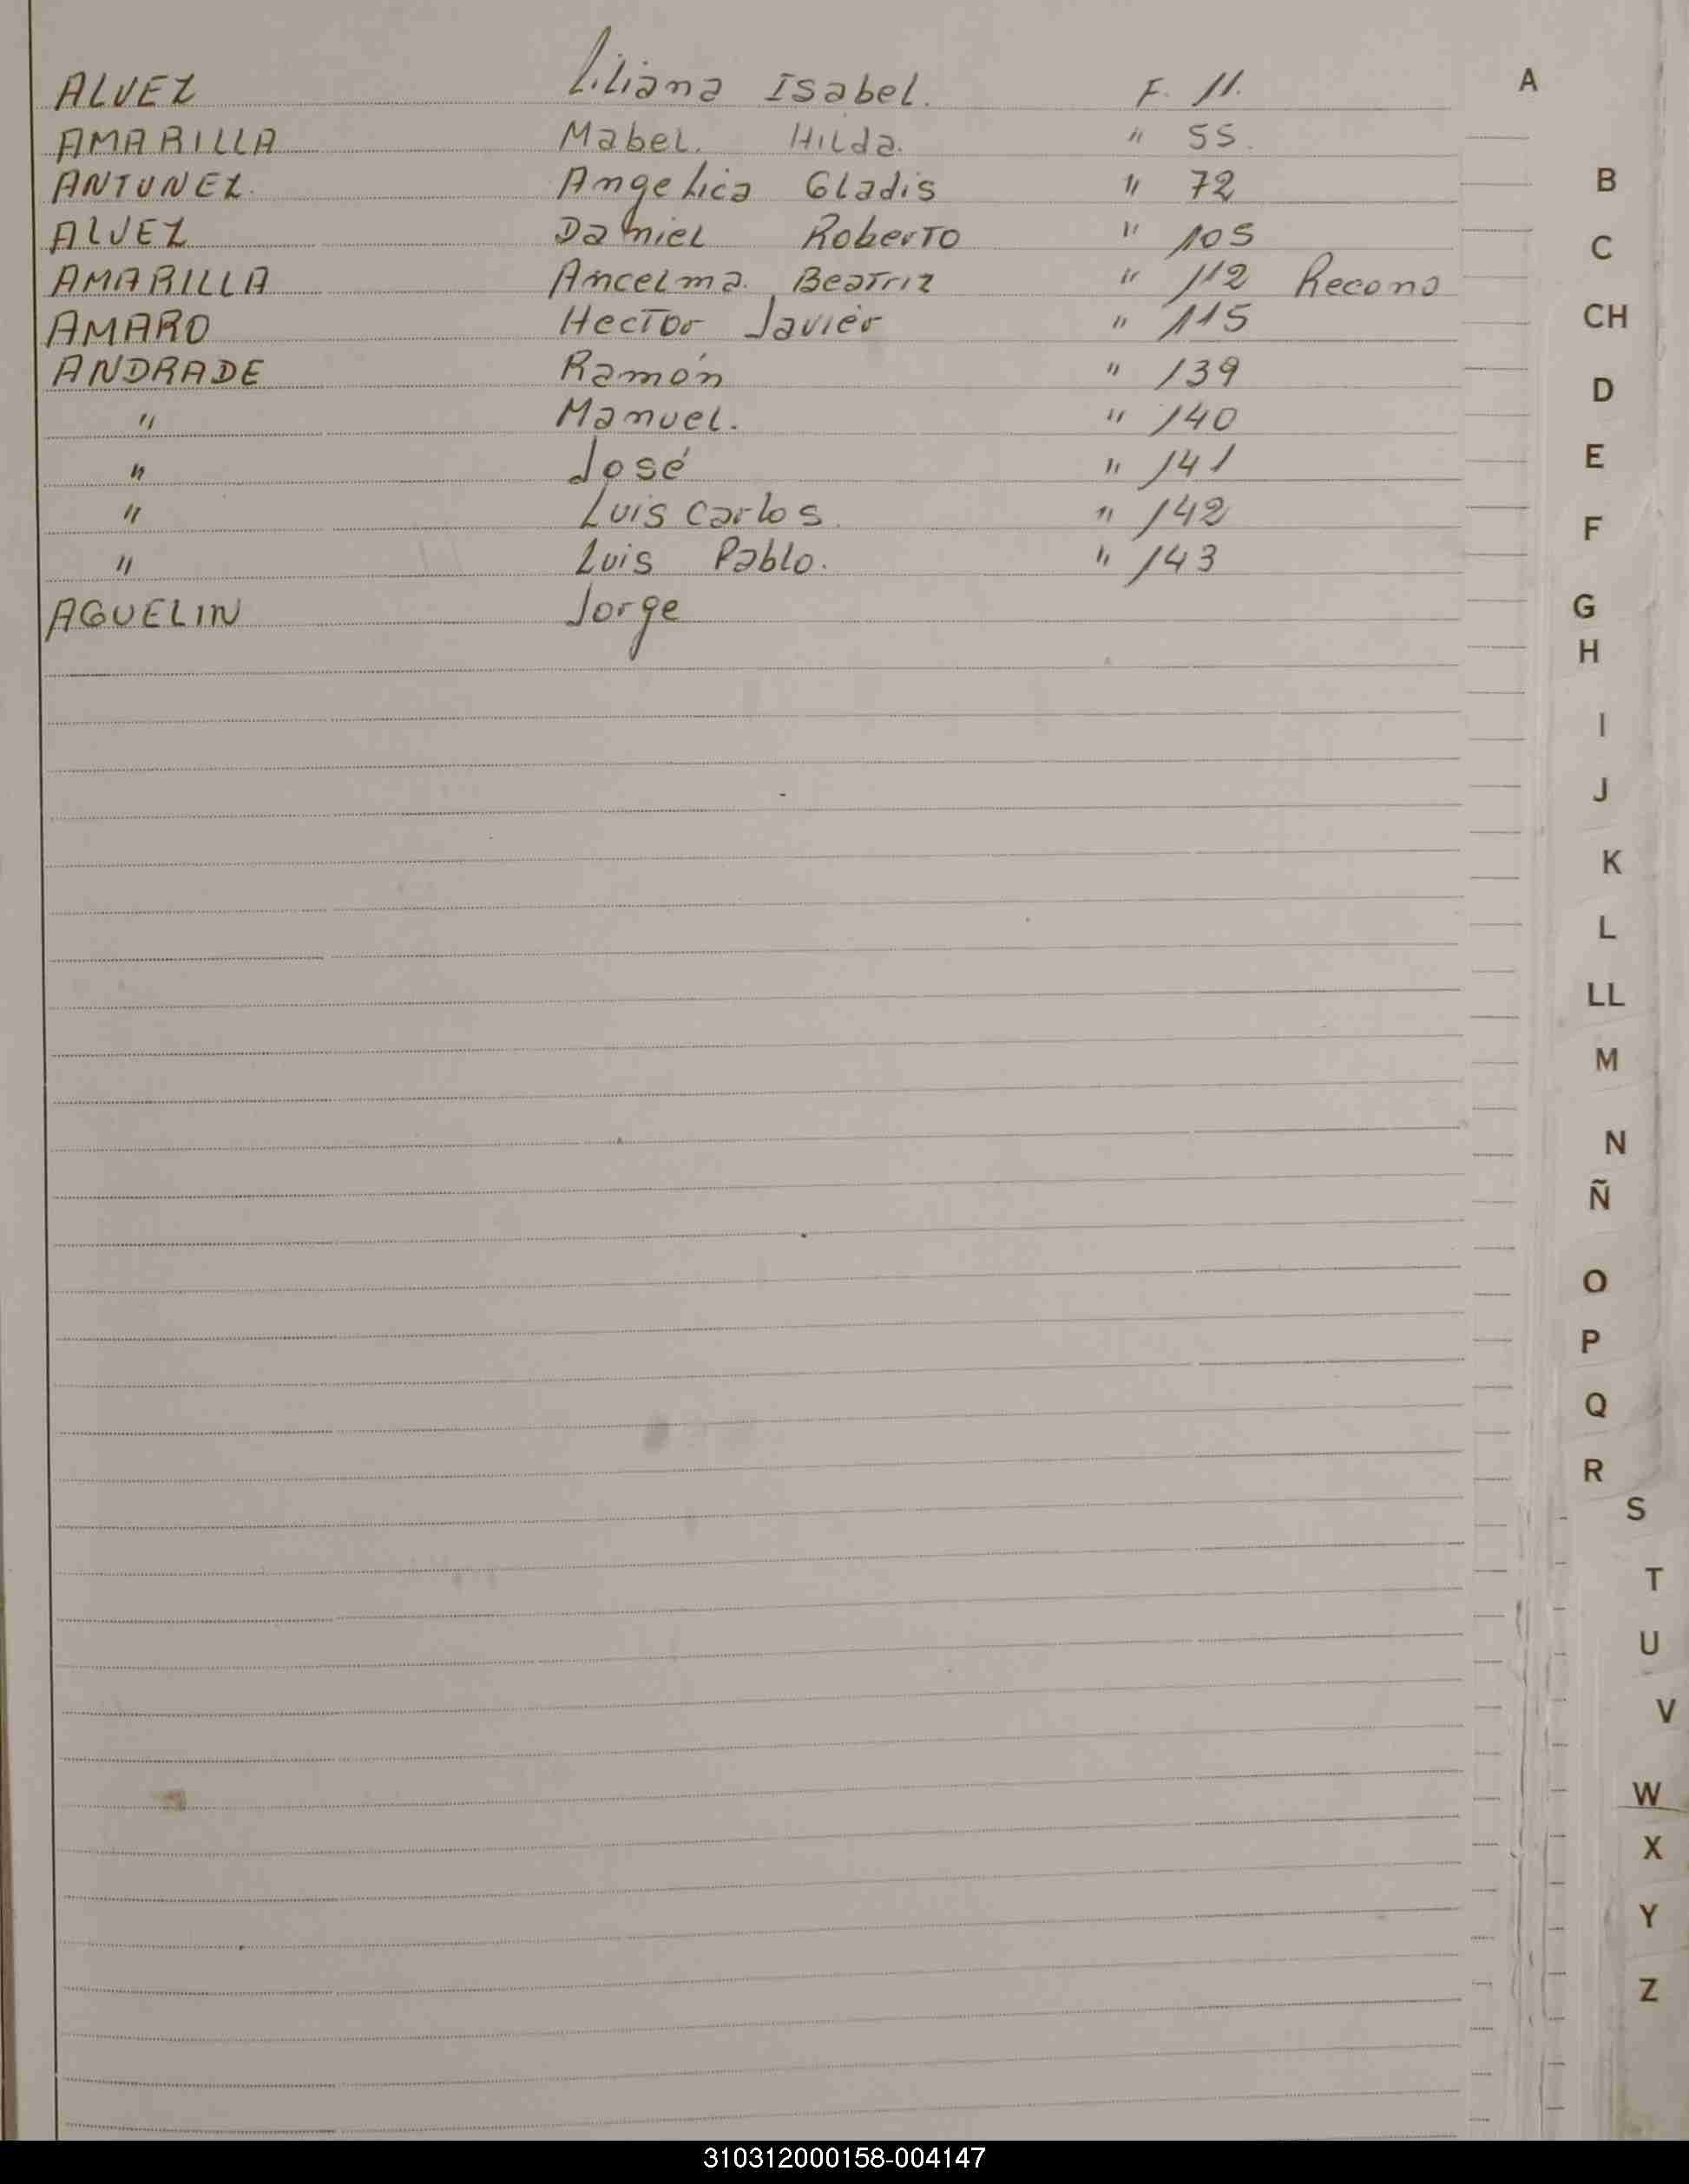 ALVEZ Liliana Isabel. F. 11. A
AMARILLA Mabel. Hilda. " 55.
ANTUNEZ. Angelica Gladis " 72 B
ALVEZ Daniel Roberto " 105 C
AMARILLA Ancelma. Beatriz " 112 Recono
AMARO Hector Javier " 115 CH
ANDRADE Ramón " 139 D
" Manuel. " 140
" José " 141 E
" Luis Carlos. " 142 F
" Luis Pablo. " 143
AGUELIN Jorge G
H
I
J
K
L
LL
M
N
Ñ
O
P
Q
R
S
T
U
V
W
X
Y
Z
310312000158-004147